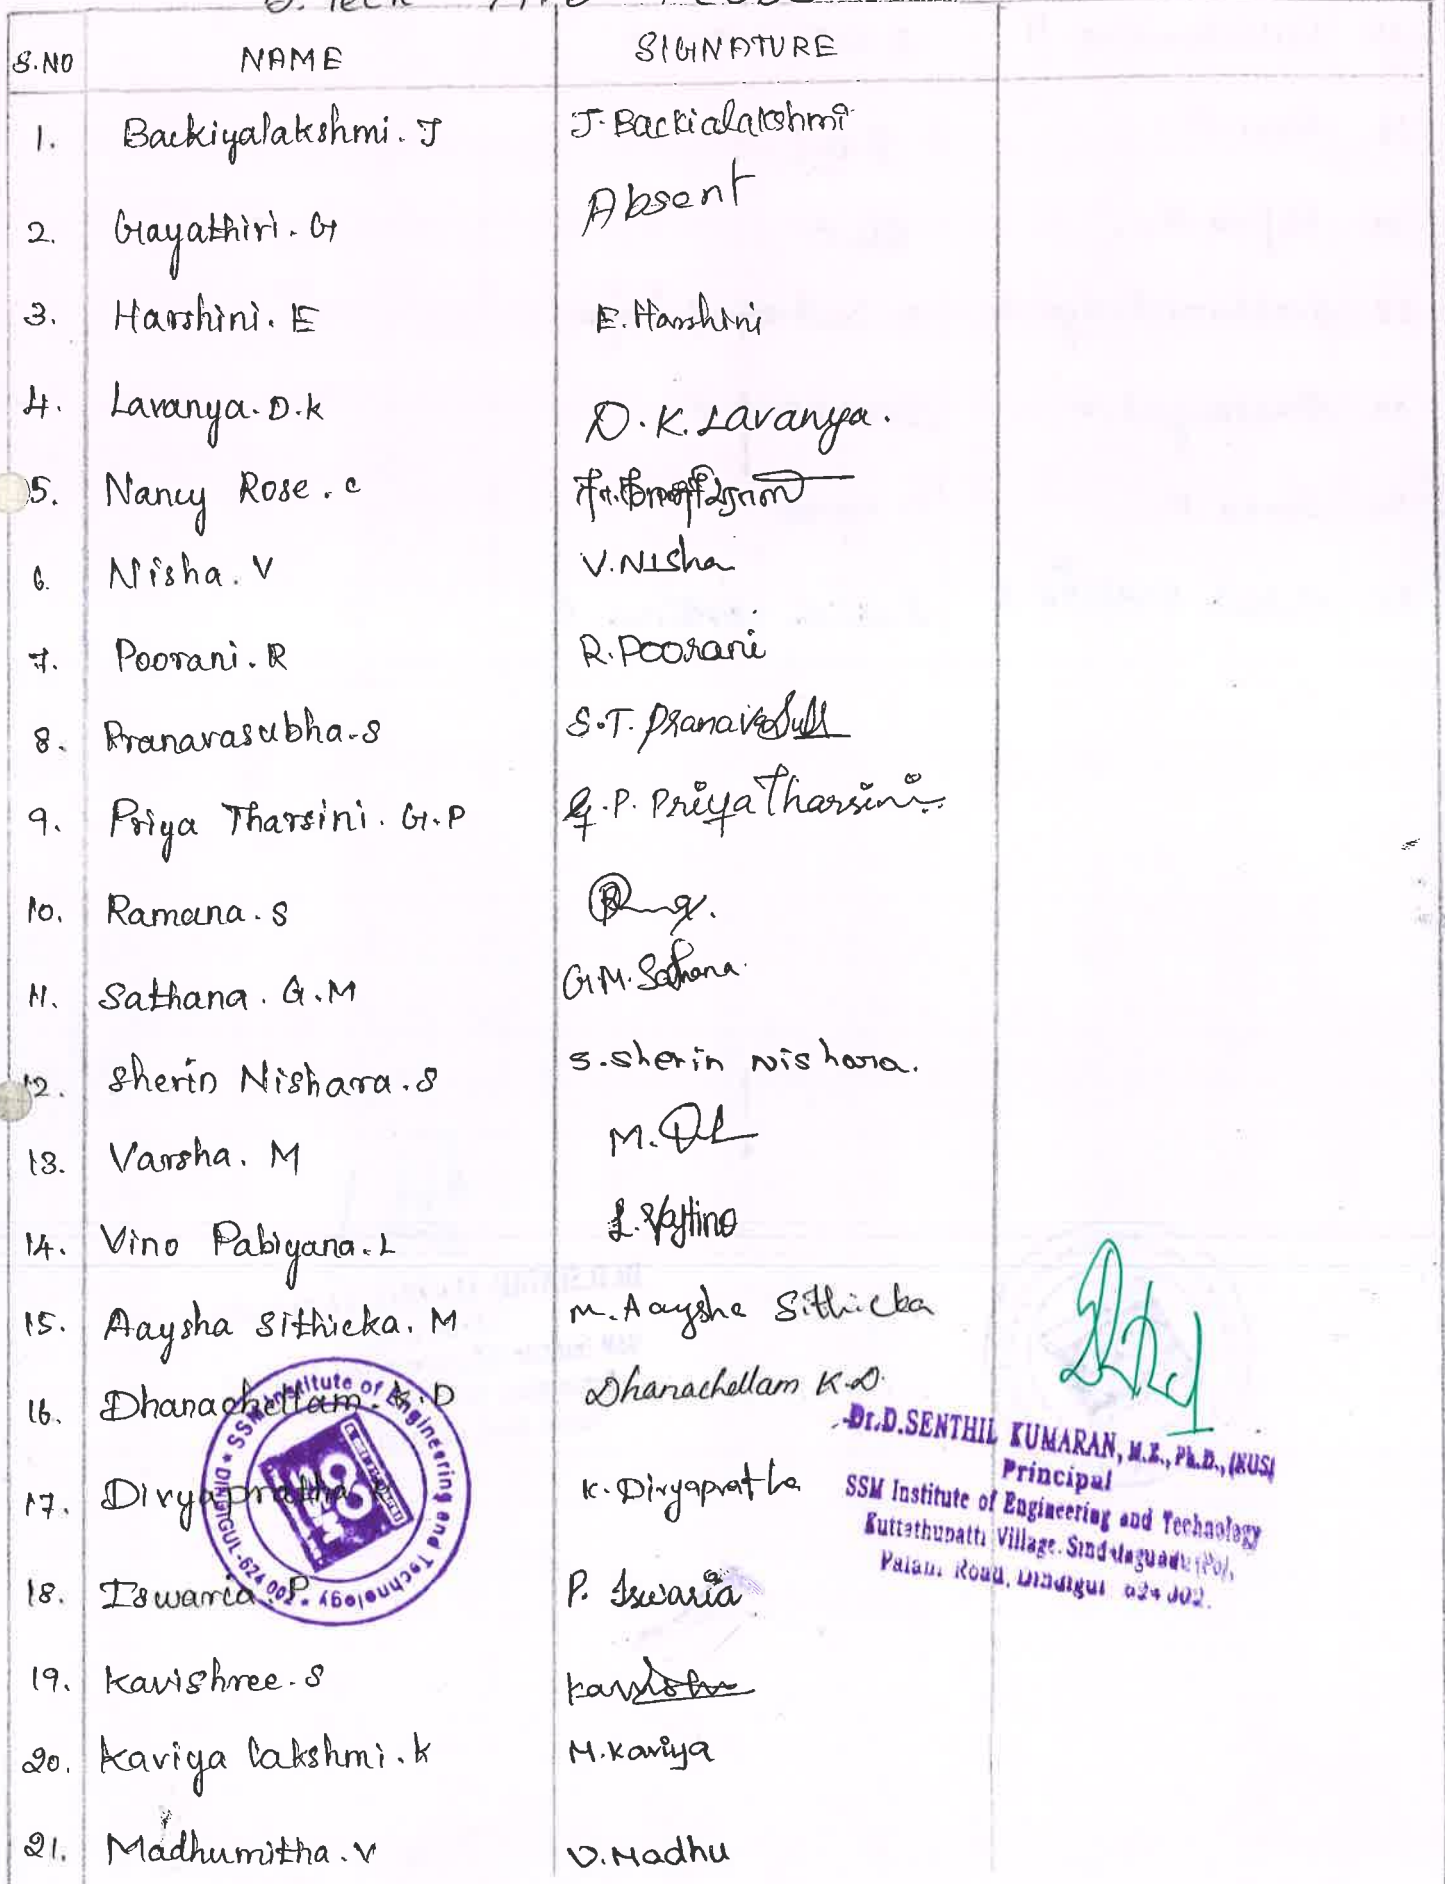 B.Tech
S.NO NAME SIGNATURE
1. Backiyalakshmi. J J. Backialakshmi
2. Gayathiri. G Absent
3. Harshini. E E. Harshini
4. Lavanya. D.K D.K. Lavanya.
5. Nancy Rose. C
6. Nisha. V V. Nisha
7. Poorani. R R. Poorani
8. Pranavasubha. S S.T.
9. Priya Tharsini. G.P G.P. Priya Tharsini.
10. Ramana. S
11. Sathana. G.M G.M. Sathana.
12. Sherin Nishara. S S. Sherin Nishara.
13. Varsha. M M.
14. Vino Pabiyana. L L.
15. Aaysha Sithicka. M M. Aaysha Sithicka
16. Dhanachellam. K.D Dhanachellam K.D.
17. Divyapratha K. Divyapratha
18. Iswaria. P P. Iswaria
19. Kavishree. S
20. Kaviya Lakshmi. K M. Kaviya
21. Madhumitha. V V. Madhu
SSM Institute of Engineering and Technology
DINDIGUL-624 002
Dr.D.SENTHIL KUMARAN, M.E., Ph.D., (NUS)
Principal
SSM Institute of Engineering and Technology
Kuttathupatti Village. Sindalagundu (Po),
Palani Road, Dindigul 624 002.